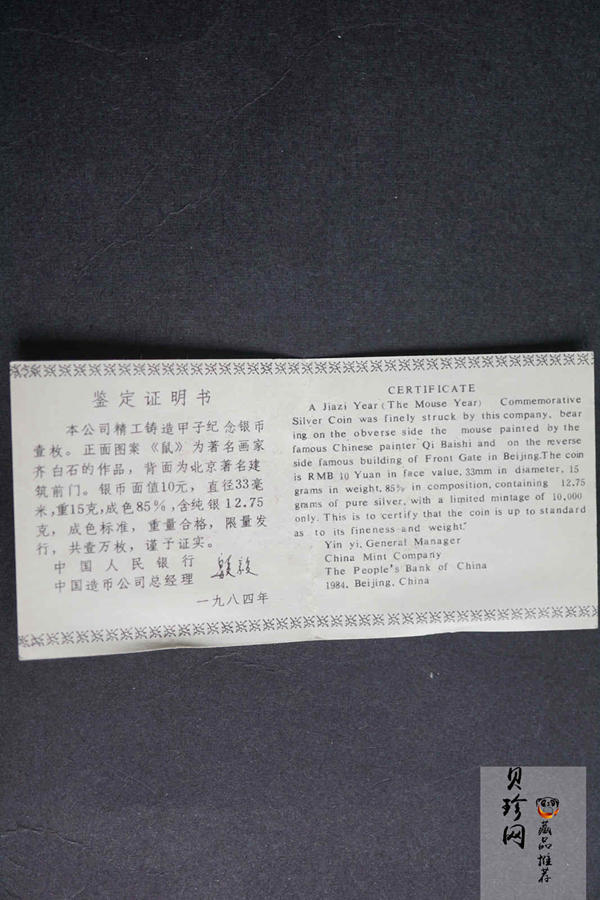 鉴定证明书
本公司精工铸造甲子纪念银币
壹枚。正面图案《鼠》为著名画家
齐白石的作品，背面为北京著名建
筑前门。银币面值10元，直径33毫
米，重15克，成色85%，含纯银12.75
克，成色标准，重量合格，限量发
行，共壹万枚，谨予证实。
中国人民银行
中国造币公司总经理
一九八四年
CERTIFICATE
A Jiazi Year (The Mouse Year) Commemorative
Silver Coin was finely struck by this company, bear
ing on the obverse side the mouse painted by the
famous Chinese painter Qi Baishi and on the reverse
side famous building of Front Gate in Beijing.The coin
is RMB 10 Yuan in face value, 33mm in diameter, 15
grams in weight, 85% in composition, containing 12.75
grams of pure silver, with a limited mintage of 10,000
only. This is to certify that the coin is up to standard
as to its fineness and weight.
Yin yi, General Manager
China Mint Company
The People's Bank of China
1984. Beijing, China
贝珍网
藏品推荐